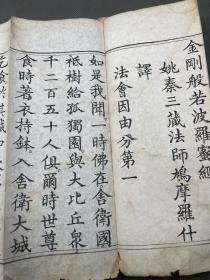 金剛般若波羅蜜經
姚秦三藏法師鳩摩羅什
譯
法會因由分第一
如是我聞。一時佛在舍衛國
祇樹給孤獨園。與大比丘衆
千二百五十人俱。爾時世尊
食時。著衣持鉢。入舍衛大城